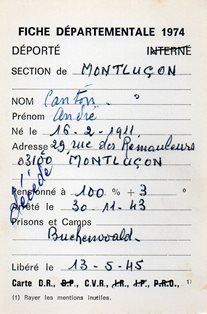 FICHE DÉPARTEMENTALE 1974
DÉPORTÉ INTERNÉ
SECTION de MONTLUÇON
NOM Canton
Prénom André
Né le 16-2-1911
Adresse 29, rue des Remauleurs
03100 MONTLUÇON
Décédé
Pensionné à 100 % + 3 °
Arrêté le 30-11-43
Prisons et Camps
Buchenwald
Libéré le 13-5-45
Carte D.R., D.P., C.V.R., I.R., I.P., P.R.O., 1)
(1) Rayer les mentions inutiles.